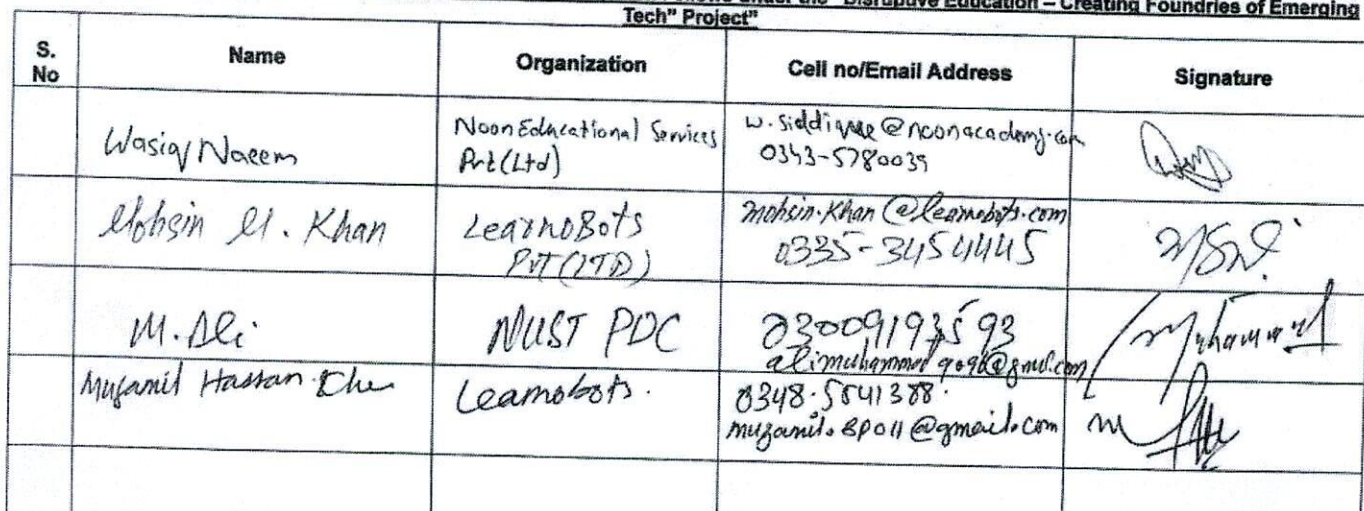 under the "Disruptive Education – Creating Foundries of Emerging
Tech" Project"
S. No	Name	Organization	Cell no/Email Address	Signature
Wasiq Naeem	Noon Educational Services	w.siddique@noonacademy.com
Pvt(Ltd)	0343-5780039
Mohsin M. Khan	LearnoBots	mohsin.khan@learnobots.com
Pvt(LTD)	0335-3454445
M. Ali	NUST PDC	03009193593	Muhammad
alimuhammad9096@gmail.com
Muzamil Hassan	Learnobots.	0348-5841388.
muzamil.8P011@gmail.com